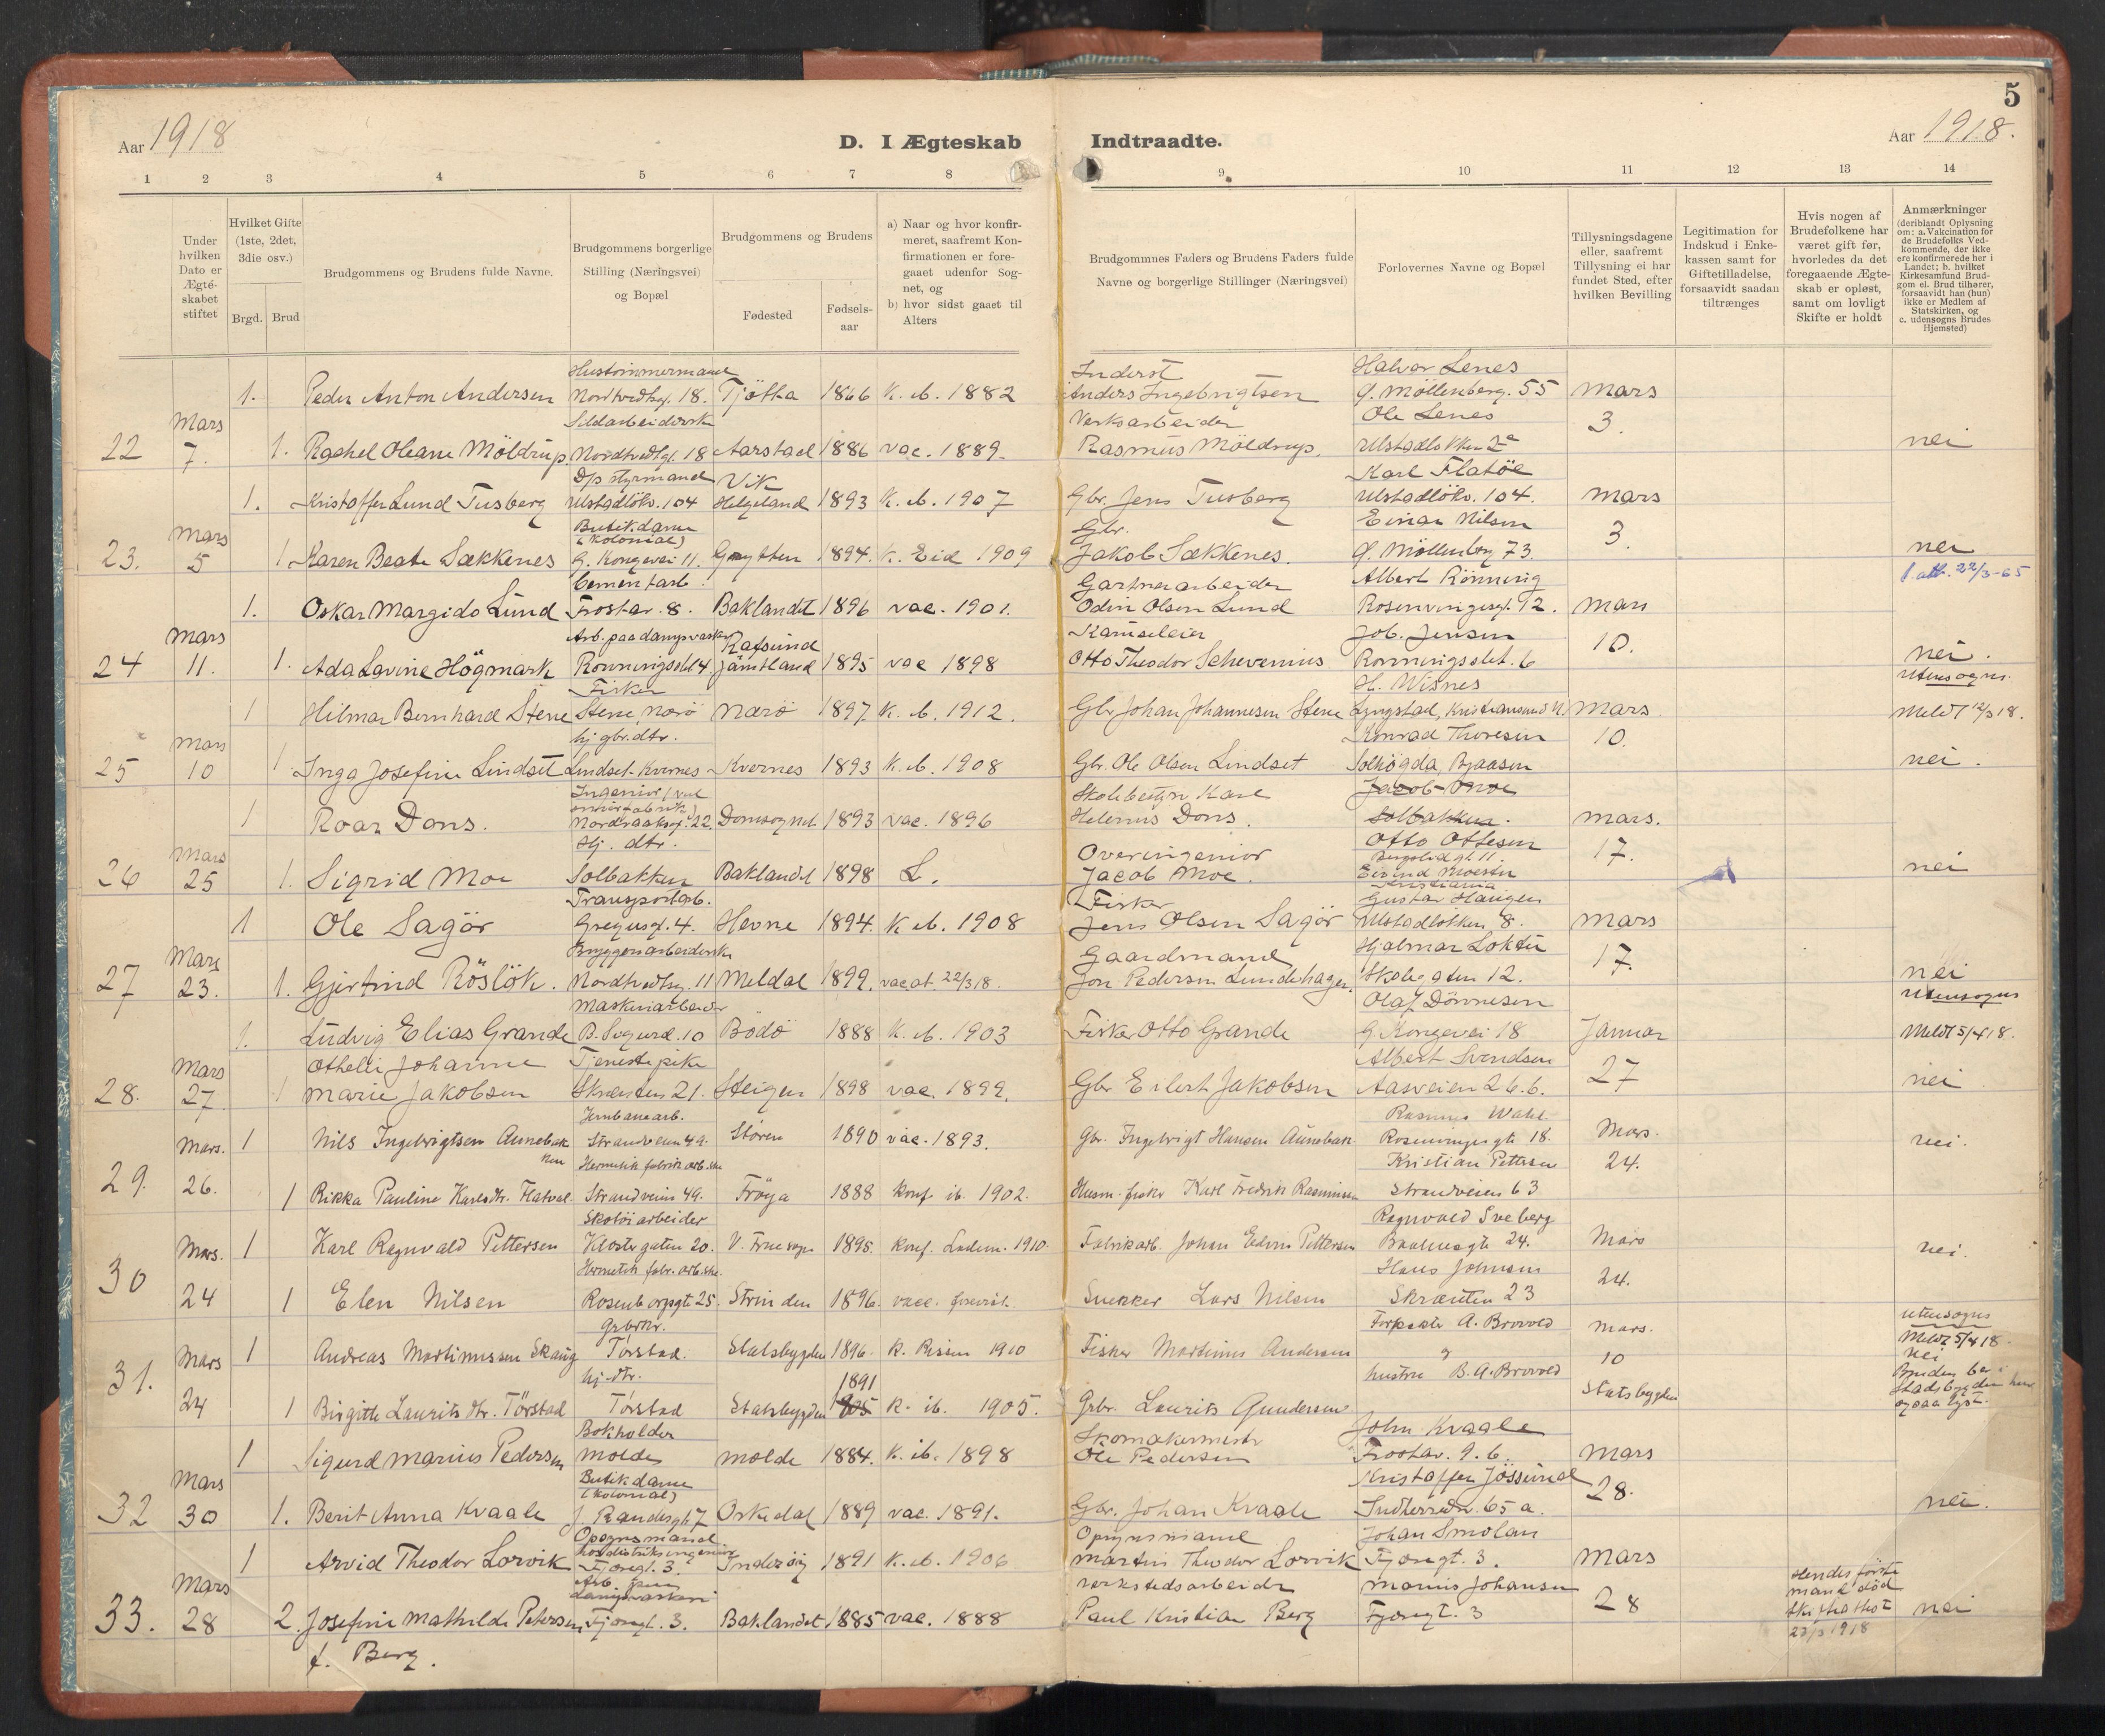 5
Aar 1918
D. I Ægteskab Indtraadte.
Aar 1918.
1 2 3 4 5 6 7 8 9 10 11 12 13 14
Under hvilken Dato er Ægteskabet stiftet
Hvilket Gifte (1ste, 2det, 3die osv.)
Brgd. Brud
Brudgommens og Brudens fulde Navne.
Brudgommens borgerlige Stilling (Næringsvei) og Bopæl
Brudgommens og Brudens
Fødested
Fødsels-aar
a) Naar og hvor konfirmeret, saafremt Konfirmationen er foregaaet udenfor Sognet, og
b) hvor sidst gaaet til Alters
Brudgommnes Faders og Brudens Faders fulde Navne og borgerlige Stillinger (Næringsvei)
Forlovernes Navne og Bopæl
Tillysningsdagene eller, saafremt Tillysning ei har fundet Sted, efter hvilken Bevilling
Legitimation for Indskud i Enkekassen samt for Giftetilladelse, forsaavidt saadan tiltrænges
Hvis nogen af Brudefolkene har været gift før, hvorledes da det foregaaende Ægteskab er opløst, samt om lovligt Skifte er holdt
Anmærkninger (deriblandt Oplysning om: a. Vakcination for de Brudefolks Vedkommende, der ikke ere konfirmerede her i Landet; b. hvilket Kirkesamfund Brudgom el. Brud tilhører, forsaavidt han (hun) ikke er Medlem af Statskirken, og c. udensogns Brudes Hjemsted)
Hustømmermand Inderst Halvor Lenes
1. Peder Anton Andersen Nordtvedtsg. 18. Tjøtta 1866 K. ib. 1882 Anders Ingebrigtsen Ø. Möllenberg. 55 Mars
Mars Sildarbeiderske Verksarbeider Ole Lenes 3.
22 7. 1. Rachel Oleane Möldrup. Nordtvedtgt. 18 Aarstad 1886 vac. 1889. Rasmus Möldrup. nei
D/s styrmand Vik Karl Flatöe
1. Kristoffer Lund Tusberg Ulstadlökv. 104 Helgeland 1893 K. ib. 1907 Gbr. Jens Tusberg Ulstadlökv. 104. Mars
Mars Butikdame (kolonial) Gbr. Einar Nilsen 3.
23. 5 1 Karen Beate Sækkenes G. Kongevei 11. Grytten 1894. K. Eid 1909 Jakob Sækkenes. Ø. Möllenberg 73 nei
Cementarb. Gartnerarbeider Albert Rönning 1 att. 22/3-65
1. Oskar Margido Lund Frostav. 8. Baklandet 1896 vac. 1901. Odin Olsen Lund Rosenvingesgt. 12. Mars
Mars Arb. paa dampvaskeri Job. Jensen 10.
24 11. 1. Ada Lovine Högmark Ronningsslet 4. Jämtland 1895 vac 1898 Otto Theodor Schevenius Ronningsslet. 6 nei.
Fisker H. Wisnes Utensogns.
1 Hilmar Bernhard Stene Stene, Nærö Nærö 1897. K. ib. 1912. Gbr Johan Johannesen Stene Lyngstad, Kristiansund N. Mars. Meldt 12/3 18.
Mars hj gbr.dtr. Konrad Thoresen 10.
25 10 1. Inga Josefine Lindset Lindset Kvernes Kvernes 1893 K. ib. 1908 Gbr. Ole Olsen Lindset Solhögda, Byaasen nei.
Jacob Moe
1 Roar Dons. Nordraaksgt. 22. Domsognet. 1893 vac. 1896 Helenus Dons. Solbakken. Mars.
Mars Hj. dtr. Overingeniør Otto Ottesen Bergslidgt. 11. 17.
26 25 1. Sigrid Moe Solbakken Baklandet 1898 L. Jacob Moe. Kristiania nei
Transportarb. Fisker Gustav Haugen
1 Ole Sagör Gregusgt. 4. Hevne 1894. K. ib. 1908 Jens Olsen Sagör Ulstadlökken 8. Mars
Mars Bryggeriarbeiderske Gaardmand Hjalmar Lokten 17.
27 23. 1. Gjertrud Röslök. Nordtvedtsg. 11 Meldal 1899. vac at. 22/3 18. Jon Pedersen Lundehagen. Skolegaten 12. nei
Maskinarbeider Olaf Dönnesen Utensogns
1. Ludvig Elias Grande B. Sigurd. 10 Bodö 1888 K. ib. 1903 Fisker Otto Grande G. Kongevei 18 Januar Meldt 5/4 18.
Mars Othelie Johanne Tjenestepike Albert Svendsen 27
28. 27. 1 Marie Jakobsen Skrænten 21. Steigen 1898 vac. 1899. Gbr Eilert Jakobsen Aasveien 26.6. nei
Jernbanearb. Rasmus Wahl
Mars. 1 Nils Ingebrigtsen Aunebakken Strandveien 49. Stören 1890 vac. 1893. Gbr. Ingebrigt Hansen Aunebak Rosenvingesgt. 18. Mars. nei.
Hermetik fabrik arb.ske Kristian Pettersen 24.
29. 26. 1 Rikka Pauline Karlsdtr. Flatval Strandveien 49. Fröya 1888 konf. ib. 1902. Husm. fisker Karl Fredrik Rasmussen Strandveien 63
Skotöiarbeider Ragnvald Sveberg
Mars. 1 Karl Ragnvald Pettersen Klostergaten 20. V. Frue sogn 1895. konf. Ladem. 1910. Fabrikarb. Johan Edvin Pettersen 24. Mars nei.
Hermetik fabr. arb.ske. Hans Johnsen 24.
30 24 1 Elen Nilsen Rosenborggt 25. Strinden 1896. vacc. forevist. Snekker Lars Nilsen Skrænten 23
Grbrkr. Forpakter A. Brovold utensogns
Mars 1 Andreas Martinussen Skaug Törstad. Statsbygden 1896. K. Rissen 1910 Fisker Martinus Andersen Mars. Meldt 5/4 18. nei
hj.dtr. 1891 hustru B. A. Brovold 10 Statsbygden
31. 24 1 Birgitte Laurits dtr. Törstad Törstad Statsbygden 905 K. ib. 1905. Grbr. Laurits Gundersen ogsaa lyst.
Bokholder Skomakermestr John Kvaale
1 Sigurd Marius Pedersen Molde Molde 1884. K. ib. 1898 Ole Pedersen Frostav. 9. b. Mars
Mars Butikdame (kolonial) Kristoffer Jössund 28.
32 30 1. Berit Anna Kvaale J. Randesgt. 7 Orkedal 1889 vac. 1891. Gbr. Johan Kvaale Indherredsv. 65 a. nei.
Opsynsmand hos distriktsingeniør Opsynsmand Johan Smolan
1 Arvid Theodor Lorvik Fjæregt. 3. Inderöy 1891 K. ib. 1906 Martin Theodor Lorvik Fjæregt. 3. Mars
Mars Arb. paa dampvaskeri Verkstedsarbeider Marius Johansen 28 Hendes förste mand död
33. 28 2. Josefine Mathilde Petersen Fjæregt. 3. Baklandet 1885 vac. 1888 Paul Kristian Berg Fjæregt. 3 23/3 1918 nei
f. Berg.